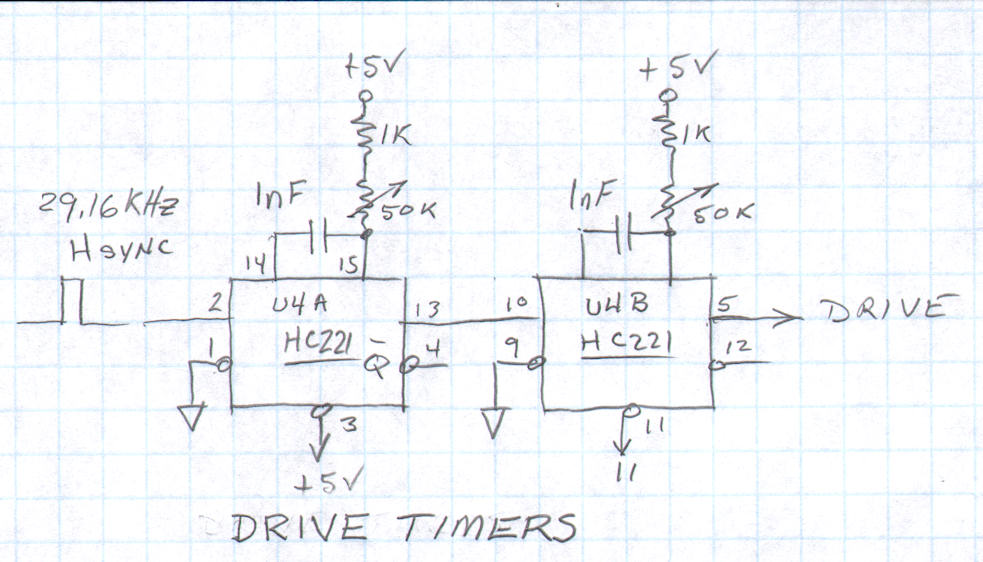 +5V
+5V
1K
1K
1nF
50K
1nF
50K
29.16KHz
HSYNC
14
15
2
U4A
13
10
U4B
5
DRIVE
1
HC221
Q̅
4
9
HC221
12
3
11
+5V
11
DRIVE TIMERS